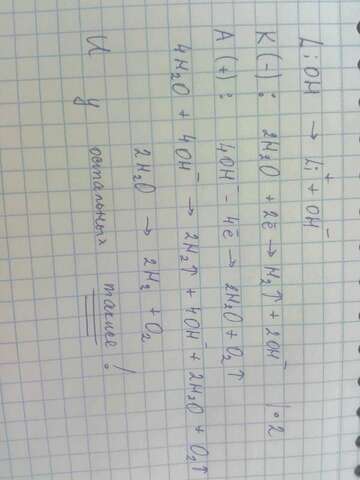 LiOH → Li⁺ + OH⁻
K (-) : 2H₂O + 2ē → H₂↑ + 2OH⁻ | · 2
A (+) : 4OH⁻ - 4ē → 2H₂O + O₂↑
4H₂O + 4OH⁻ → 2H₂↑ + 4OH⁻ + 2H₂O + O₂↑
2H₂O → 2H₂ + O₂
И у остальных также!